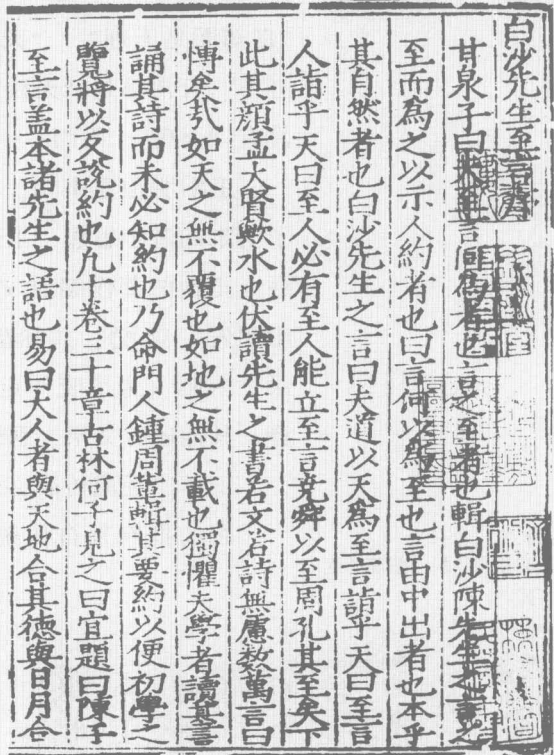 白沙先生至言序
甘泉子曰言者也言之至者也輯白沙陳先生之言之
至而為之以示人約者也曰言何以為至也言由中出者也本乎
其自然者也白沙先生之言曰夫道以天為至言詣乎天曰至言
人詣乎天曰至人必有至人能立至言堯舜以至周孔其至矣下
此其顏孟大賢歟水也伏讀先生之書若文若詩無慮數萬言曰
慱矣㢤如天之無不覆也如地之無不載也獨懼夫學者讀其言
誦其詩而未必知約也乃命門人鍾周輯其要約以便初學之
覽將以反說約也凡十卷三十章古林何子見之曰宜題曰陳子
至言盖本諸先生之語也易曰大人者與天地合其德與日月合